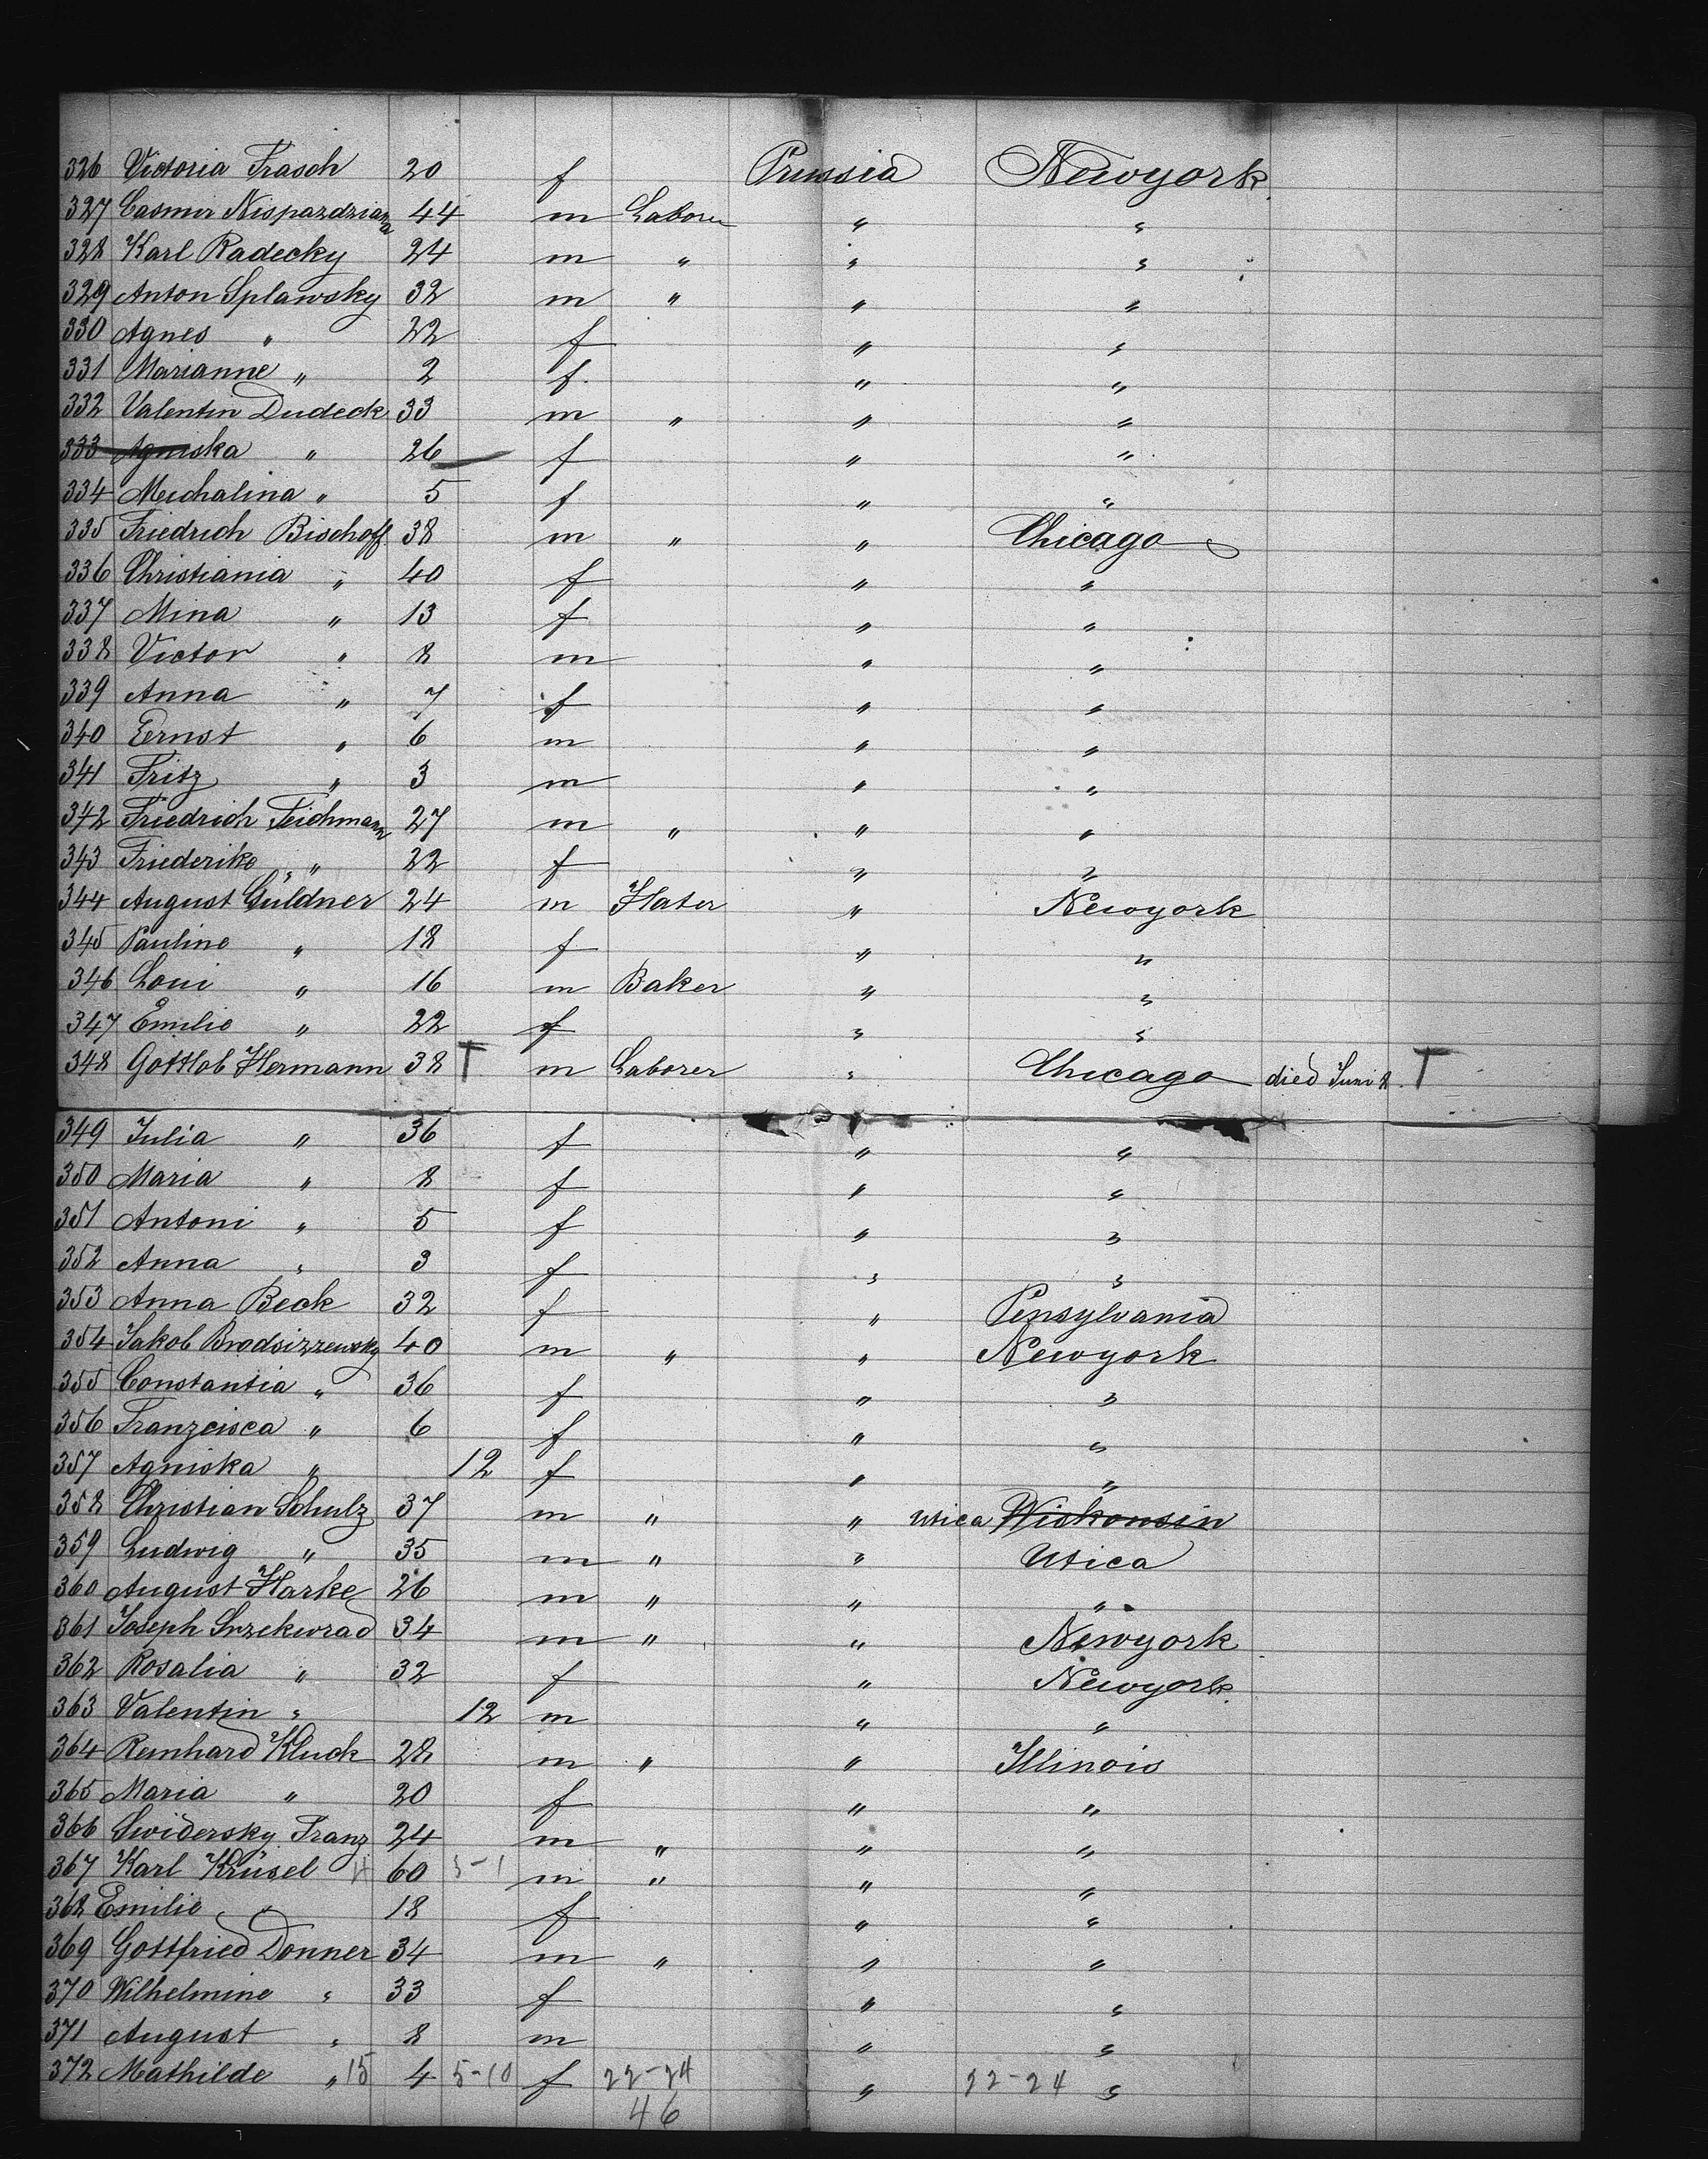 326 Victoria Frasch 20 f Prussia Newyork
327 Casmir Nispazdziana 44 m Laborer " "
328 Karl Radecky 24 m " " "
329 Anton Splawsky 32 m " " "
330 Agnes " 22 f " "
331 Marianne " 2 f. " "
332 Valentin Dudeck 33 m " " "
333 Agniska " 26 f " "
334 Meichalina " 5 f " "
335 Friedrich Bischoff 38 m " " Chicago
336 Christiania " 40 f " "
337 Mina " 13 f " "
338 Victor " 8 m " "
339 Anna " 7 f " "
340 Ernst " 6 m " "
341 Fritz " 3 m " "
342 Friedrich Teichmann 27 m " " "
343 Friederike " 22 f " "
344 August Güldner 24 m Hater " Newyork
345 Pauline " 18 f " "
346 Loui " 16 m Baker " "
347 Emilie " 22 f " "
348 Gottlob Hermann 38 T m Laborer " Chicago died Juni 8. T
349 Julia " 36 f " "
350 Maria " 8 f " "
351 Antoni " 5 f " "
352 Anna " 3 f " "
353 Anna Beck 32 f " Pensylvania
354 Jakob Brodsizzewsky 40 m " " Newyork
355 Constantia " 36 f " "
356 Franzcisca " 6 f " "
357 Agniska " 12 f " "
358 Christian Schulz 37 m " " Utica Wiskonsin
359 Ludwig " 35 m " " Utica
360 August Harke 26 m " " "
361 Joseph 34 m " " Newyork
362 Rosalia " 32 f " Newyork.
363 Valentin " 12 m " "
364 Reinhard Kluck 28 m " " Illinois
365 Maria " 20 f " "
366 Swidersky Franz 24 m " " "
367 Karl Krüsel 60 m " " "
368 Emilie " 18 f " "
369 Gottfried Donner 34 m " " "
370 Wilhelmine " 33 f " "
371 August " 8 m " "
372 Mathilde " 15 4 5-10 f 22-24 " 22-24 "
46